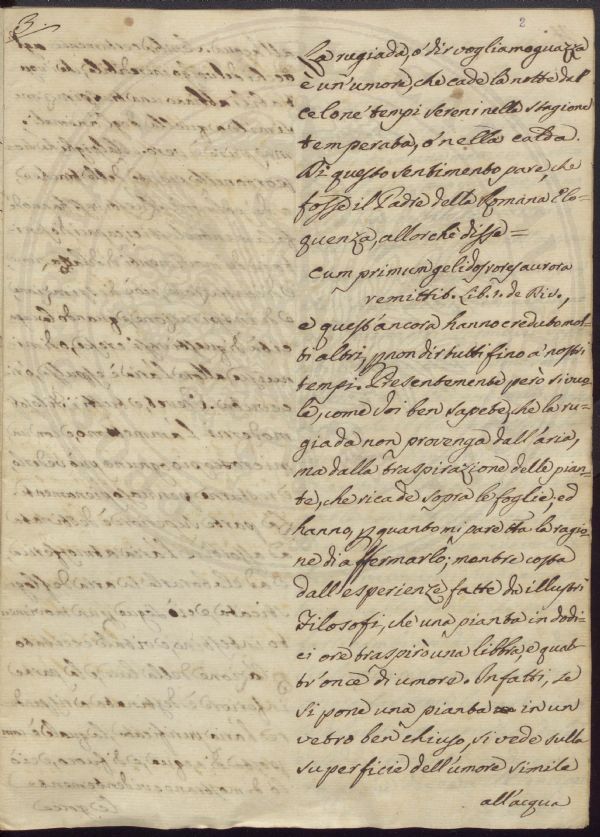 3.
2
La rugiada, ó dir vogliamo guazza
è un'umore, che cade la notte dal
celo ne' tempi sereni nella stagione
temperata, ó nella calda.
Di questo sentimento pare, che
fosse il Padre della Romana Elo=
quenza, allorchè disse =
Cum primum gelidos rores aurora
remittit. Lib. 1. de Div.,
e quest'ancora hanno creduto mol=
ti altri, p non dir tutti fino a' nostri
tempi. Presentemente però si vuo=
le, come Voi ben sapete, che la ru=
giada non provenga dall'aria,
ma dalla traspirazione delle pian=
te, che ricade sopra le foglie, ed
hanno, p quanto mi pare tta la ragio=
ne di affermarlo; mentre costa
dall'esperienze fatte da illustri
Filosofi, che una pianta in dodi=
ci ore traspirò una libbra, e quat=
tr'once di umore. Infatti, se
si pone una pianta in un
vetro ben chiuso, si vede sulla
superficie dell'umore simile
all'acqua